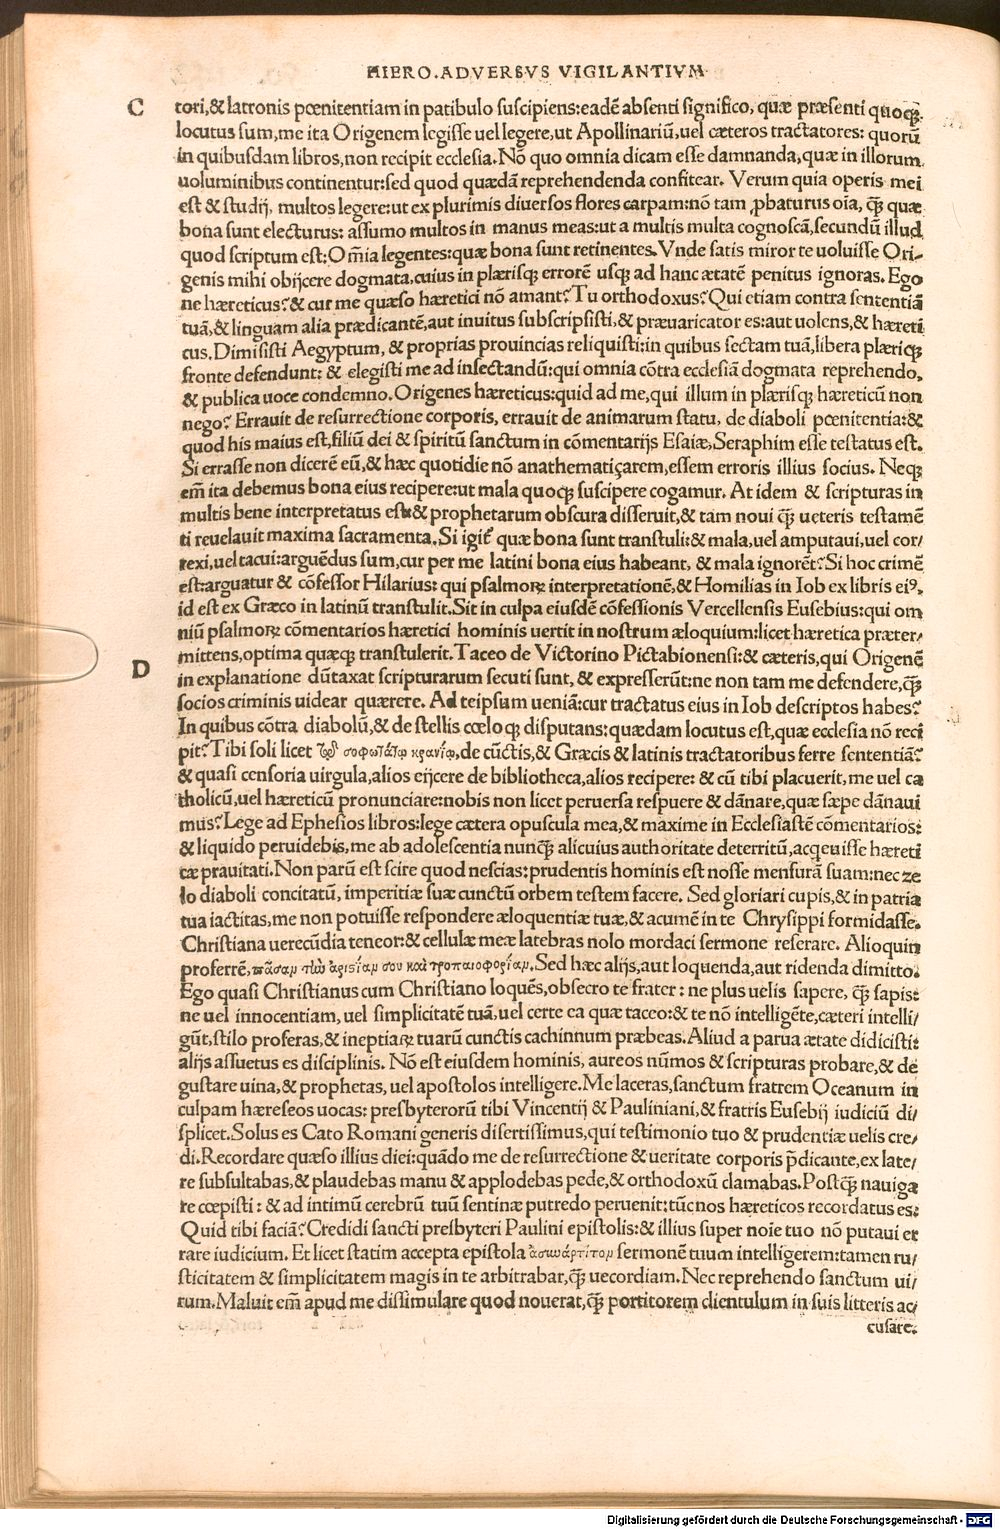 HIERO. ADVERSVS VIGILANTIVM
C
tori,& latronis pœnitentiam in patibulo suscipiens: eadē absenti significo, quæ præsenti quoqȝ
locutus sum, me ita Origenem legisse uel legere, ut Apollinariū, uel cæteros tractatores: quorū
in quibusdam libros, non recipit ecclesia. Nō quo omnia dicam esse damnanda, quæ in illorum
uoluminibus continentur: sed quod quædā reprehendenda confitear. Verum quia operis mei
est & studij, multos legere: ut ex plurimis diuersos flores carpam: nō tam ꝓbaturus oīa, q̄ȝ quæ
bona sunt electurus: assumo multos in manus meas: ut a multis multa cognoscā, secundū illud
quod scriptum est: Om̄ia legentes: quæ bona sunt retinentes. Vnde satis miror te uoluisse Ori-
genis mihi obijcere dogmata, cuius in plærisqȝ errorē usqȝ ad hanc ætatē penitus ignoras. Ego
ne hæreticus? & cur me quæso hæretici nō amant? Tu orthodoxus? Qui etiam contra sententiā
tuā,& linguam alia prædicantē, aut inuitus subscripsisti,& præuaricator es: aut uolens,& hæreti
cus. Dimisisti Aegyptum, & proprias prouincias reliquisti: in quibus sectam tuā, libera plæriqȝ
fronte defendunt: & elegisti me ad insectandū: qui omnia cōtra ecclesiā dogmata reprehendo,
& publica uoce condemno. Origenes hæreticus: quid ad me, qui illum in plærisqȝ hæreticū non
nego? Errauit de resurrectione corporis, errauit de animarum statu, de diaboli pœnitentia: &
quod his maius est, filiū dei & spiritū sanctum in cōmentarijs Esaiæ, Seraphim esse testatus est.
Si errasse non dicerē eū,& hæc quotidie nō anathematiçarem, essem erroris illius socius. Neqȝ
em̄ ita debemus bona eius recipere: ut mala quoqȝ suscipere cogamur. At idem & scripturas in
multis bene interpretatus est: & prophetarum obscura disseruit,& tam noui q̄ȝ ueteris testamē
ti reuelauit maxima sacramenta. Si igit̄ quæ bona sunt transtuli: & mala, uel amputaui, uel cor-
rexi, uel tacui: arguēdus sum, cur per me latini bona eius habeant, & mala ignorēt? Si hoc crimē
est: arguatur & cōfessor Hilarius: qui psalmoꝝ interpretationē,& Homilias in Iob ex libris eiꝰ,
id est ex Græco in latinū transtulit. Sit in culpa eiusdē cōfessionis Vercellensis Eusebius: qui om
niū psalmoꝝ cōmentarios hæretici hominis uertit in nostrum æloquium: licet hæretica præter-
mittens, optima quæqȝ transtulerit. Taceo de Victorino Pictabionensi: & cæteris, qui Origenē
D
in explanatione dūtaxat scripturarum secuti sunt, & expresserūt: ne non tam me defendere, q̄ȝ
socios criminis uidear quærere. Ad teipsum ueniā: cur tractatus eius in Iob descriptos habes?
In quibus cōtra diabolū,& de stellis cœloqȝ disputans: quædam locutus est, quæ ecclesia nō reci
pit? Tibi soli licet τῷ σοφωτάτῳ κρανίῳ, de cūctis,& Græcis & latinis tractatoribus ferre sententiā?
& quasi censoria uirgula, alios eijcere de bibliotheca, alios recipere: & cū tibi placuerit, me uel ca
tholicū, uel hæreticū pronunciare: nobis non licet peruersa respuere & dānare, quæ sæpe dānaui
mus? Lege ad Ephesios libros: lege cætera opuscula mea,& maxime in Ecclesiastē cōmentarios:
& liquido peruidebis, me ab adolescentia nunq̄ȝ alicuius authoritate deterritū, acqeuisse hæreti
cæ prauitati. Non parū est scire quod nescias: prudentis hominis est nosse mensurā suam: nec ze
lo diaboli concitatū, imperitiæ suæ cunctū orbem testem facere. Sed gloriari cupis,& in patria
tua iactitas, me non potuisse respondere æloquentiæ tuæ,& acumē in te Chrysippi formidasse.
Christiana uerecūdia teneor: & cellulæ meæ latebras nolo mordaci sermone reserare. Alioquin
proferrē, πᾶσαμ τὼ ἀριςίαμ σου καὶ τροπαιοφορίαμ. Sed hæc alijs, aut loquenda, aut ridenda dimitto.
Ego quasi Christianus cum Christiano loquēs, obsecro te frater: ne plus uelis sapere, q̄ȝ sapis:
ne uel innocentiam, uel simplicitatē tuā, uel certe ea quæ taceo: & te nō intelligēte, cæteri intelli-
gūt, stilo proferas,& ineptiaꝝ tuarū cunctis cachinnum præbeas. Aliud a parua ætate didicisti:
alijs assuetus es disciplinis. Nō est eiusdem hominis, aureos nūmos & scripturas probare,& de
gustare uina,& prophetas, uel apostolos intelligere. Me laceras, sanctum fratrem Oceanum in
culpam hæreseos uocas: presbyterorū tibi Vincentij & Pauliniani,& fratris Eusebij iudiciū di-
splicet. Solus es Cato Romani generis disertissimus, qui testimonio tuo & prudentiæ uelis cre-
di. Recordare quæso illius diei: quādo me de resurrectione & ueritate corporis p̄dicante, ex late-
re subsultabas,& plaudebas manu & applodebas pede,& orthodoxū clamabas. Postq̄ȝ nauiga
re cœpisti: & ad intimū cerebrū tuū sentinæ putredo peruenit: tūc nos hæreticos recordatus es:
Quid tibi faciā? Credidi sancti presbyteri Paulini epistolis: & illius super noīe tuo nō putaui er
rare iudicium. Et licet statim accepta epistola ἀσωάρτιτομ sermonē tuum intelligerem: tamen ru-
sticitatem & simplicitatem magis in te arbitrabar, q̄ȝ uecordiam. Nec reprehendo sanctum ui-
rum. Maluit em̄ apud me dissimulare quod nouerat, q̄ȝ portitorem clientulum in suis litteris ac-
cusare.
Digitalisierung gefördert durch die Deutsche Forschungsgemeinschaft - DFG